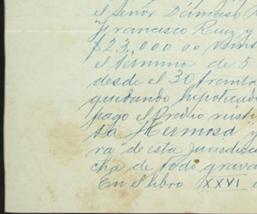 el Señor Dámaso
Francisco Ruiz y
$23,000 00
el termino de 5
desde el 30
quedando hipotecado
pago el Predio rusti
La Hermosa y
ra de esta jurisdicc
cha de todo grava
En el libro XXVI